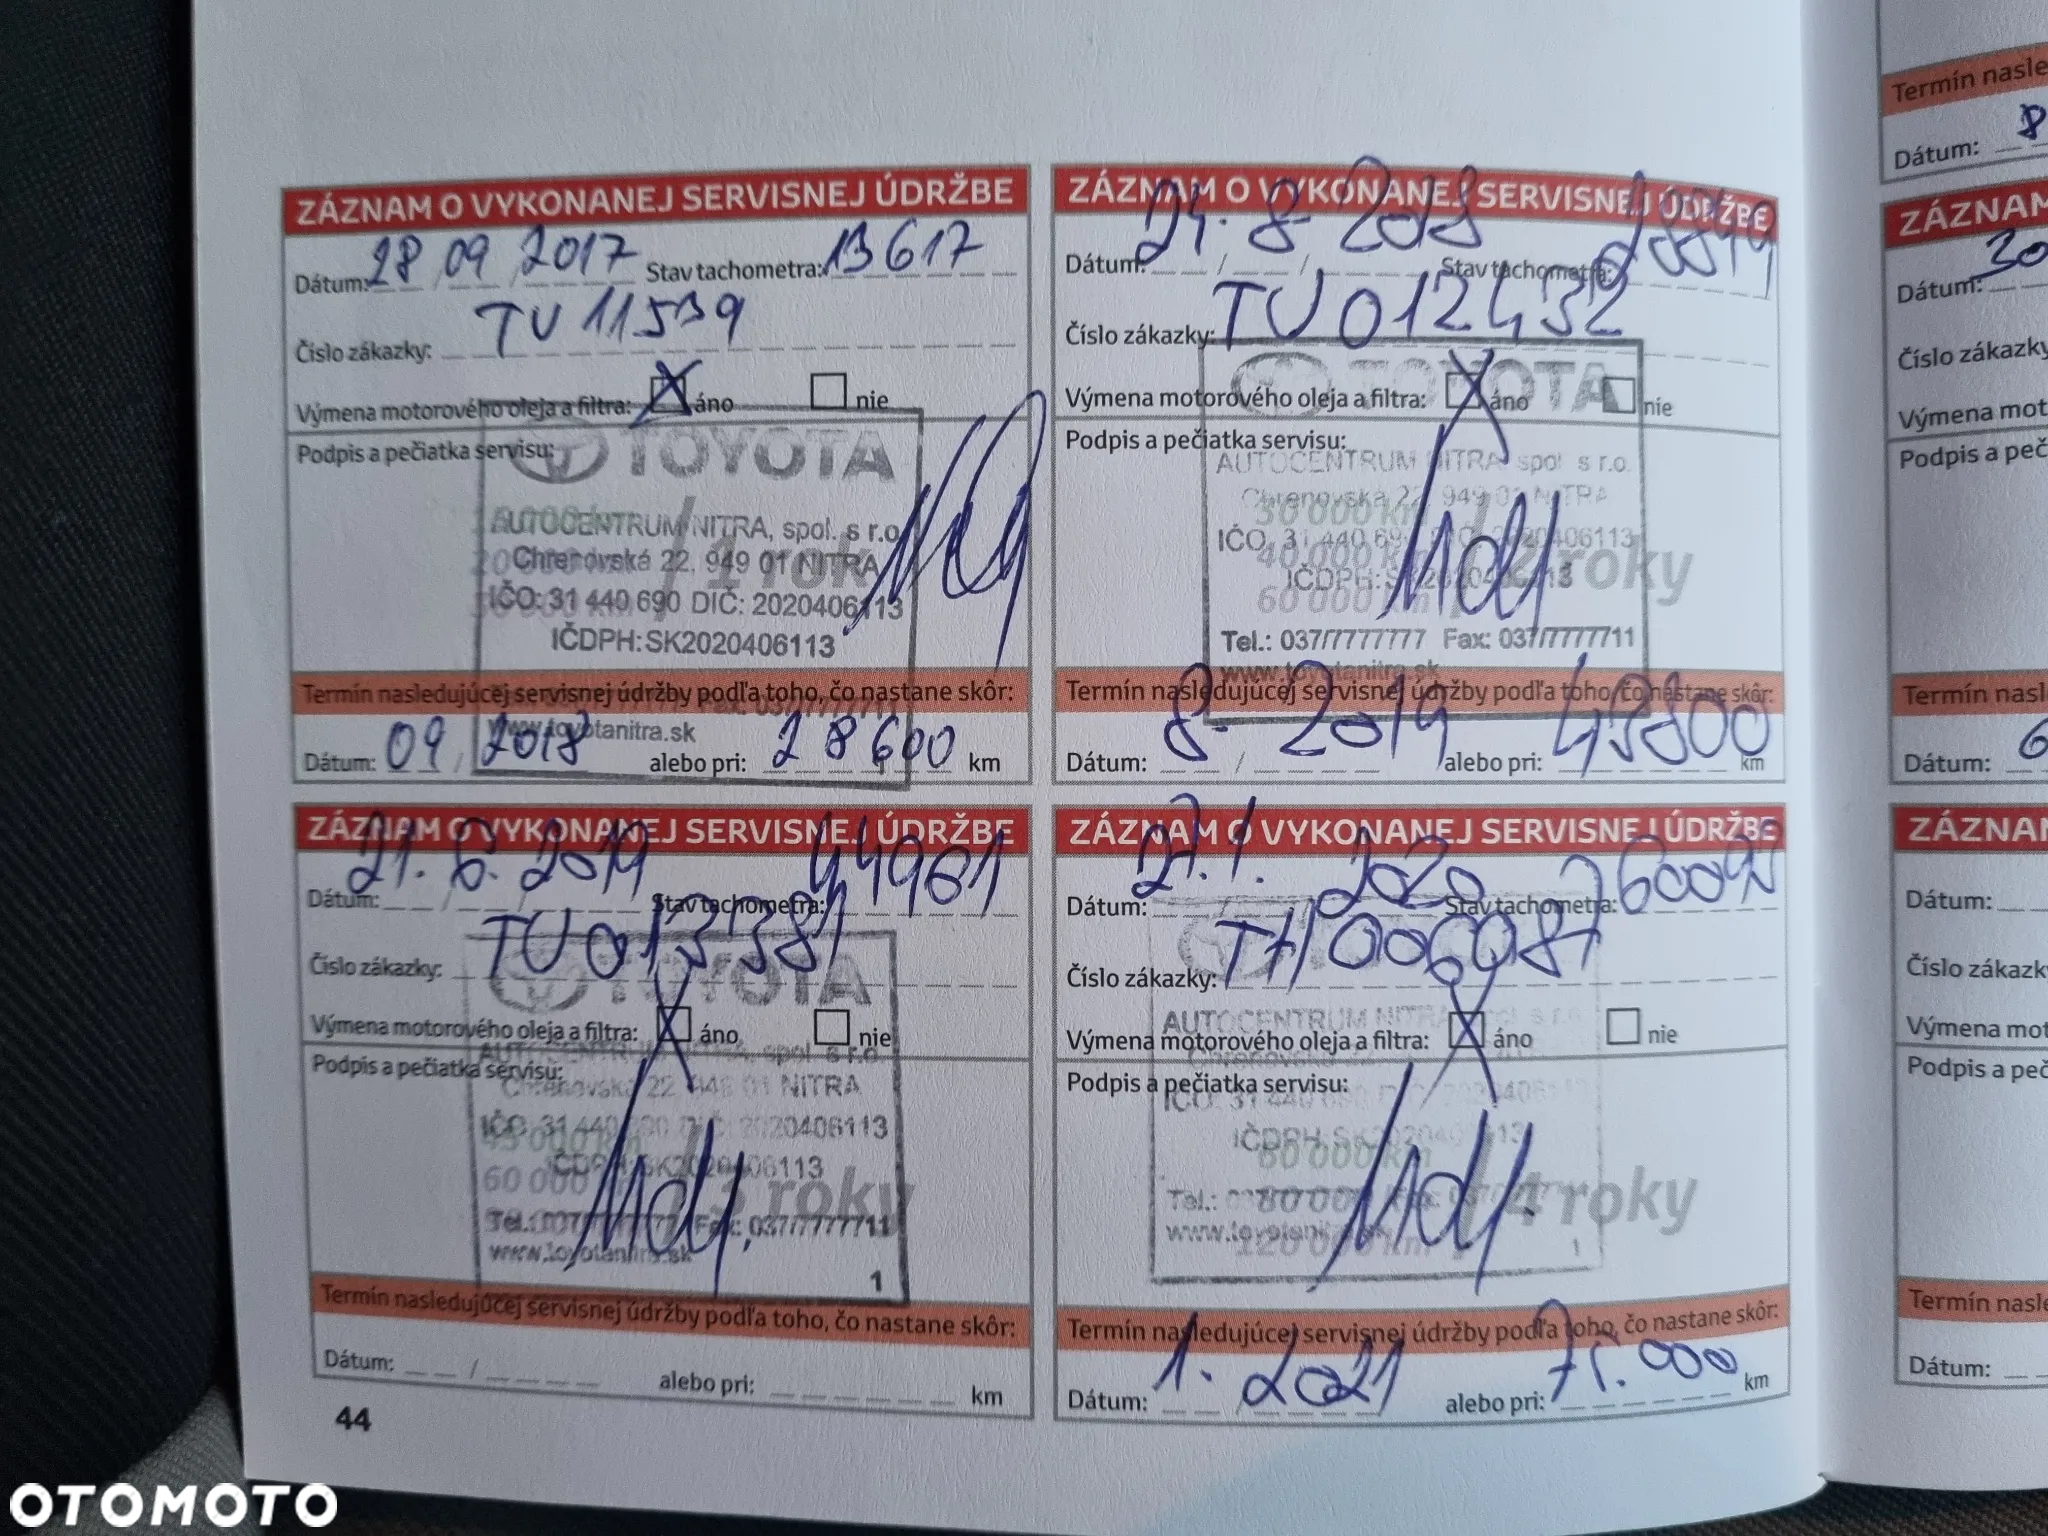 ZÁZNAM O VYKONANEJ SERVISNEJ ÚDRŽBE
Dátum: 28 / 09 / 2017 Stav tachometra: 13617
Číslo zákazky: TU 11539
Výmena motorového oleja a filtra: áno nie
Podpis a pečiatka servisu:
TOYOTA
AUTOCENTRUM NITRA, spol. s r.o.
Chrenovská 22, 949 01 NITRA
1 rok
IČO: 31 440 690 DIČ: 2020406113
IČDPH: SK2020406113
Termín nasledujúcej servisnej údržby podľa toho, čo nastane skôr:
www.toyotanitra.sk
Dátum: 09 / 2018 alebo pri: 28600 km
ZÁZNAM O VYKONANEJ SERVISNEJ ÚDRŽBE
Dátum: 24. 8. 2018 Stav tachometra:
Číslo zákazky: TU 012432
Výmena motorového oleja a filtra: áno nie
TOYOTA
Podpis a pečiatka servisu:
AUTOCENTRUM NITRA spol. s r.o.
Chrenovská 22, 949 01 NITRA
30 000 km
IČO: 31 440 690 2020406113
40 000 km / 2 roky
IČDPH: SK2020406113
60 000 km
Tel.: 037/7777777 Fax: 037/7777711
www.toyotanitra.sk
Termín nasledujúcej servisnej údržby podľa toho, čo nastane skôr:
Dátum: 8. 2019 alebo pri: 43800 km
ZÁZNAM O VYKONANEJ SERVISNEJ ÚDRŽBE
Dátum: 21. 6. 2019 Stav tachometra: 44961
Číslo zákazky: TU 013381
TOYOTA
Výmena motorového oleja a filtra: áno nie
AUTOCENTRUM NITRA, spol. s r.o.
Podpis a pečiatka servisu:
Chrenovská 22 949 01 NITRA
IČO: 31 440 690 DIČ: 2020406113
45 000 km
IČDPH: SK2020406113
60 000 / 3 roky
Tel.: 037/7777777 Fax: 037/7777711
www.toyotanitra.sk
1
Termín nasledujúcej servisnej údržby podľa toho, čo nastane skôr:
Dátum: / alebo pri: km
ZÁZNAM O VYKONANEJ SERVISNEJ ÚDRŽBE
Dátum: 27. 1. 2020 Stav tachometra:
Číslo zákazky:
Výmena motorového oleja a filtra: áno nie
AUTOCENTRUM NITRA
Podpis a pečiatka servisu:
IČO: 31 440 690 DIČ: 2020406113
IČDPH: SK2020406113
60 000 km
Tel.: 80 000 / 4 roky
www.toyotanitra.sk
120 000 km
1
Termín nasledujúcej servisnej údržby podľa toho, čo nastane skôr:
Dátum: 1. 2021 alebo pri: 75.000 km
44
Termín nasle
Dátum: 8
ZÁZNAM
Dátum: 30
Číslo zákazky
Výmena mot
Podpis a peč
Termín nasl
Dátum: 6
ZÁZNAM
Dátum:
Číslo zákazk
Výmena mot
Podpis a peč
Termín nasle
Dátum:
OTOMOTO